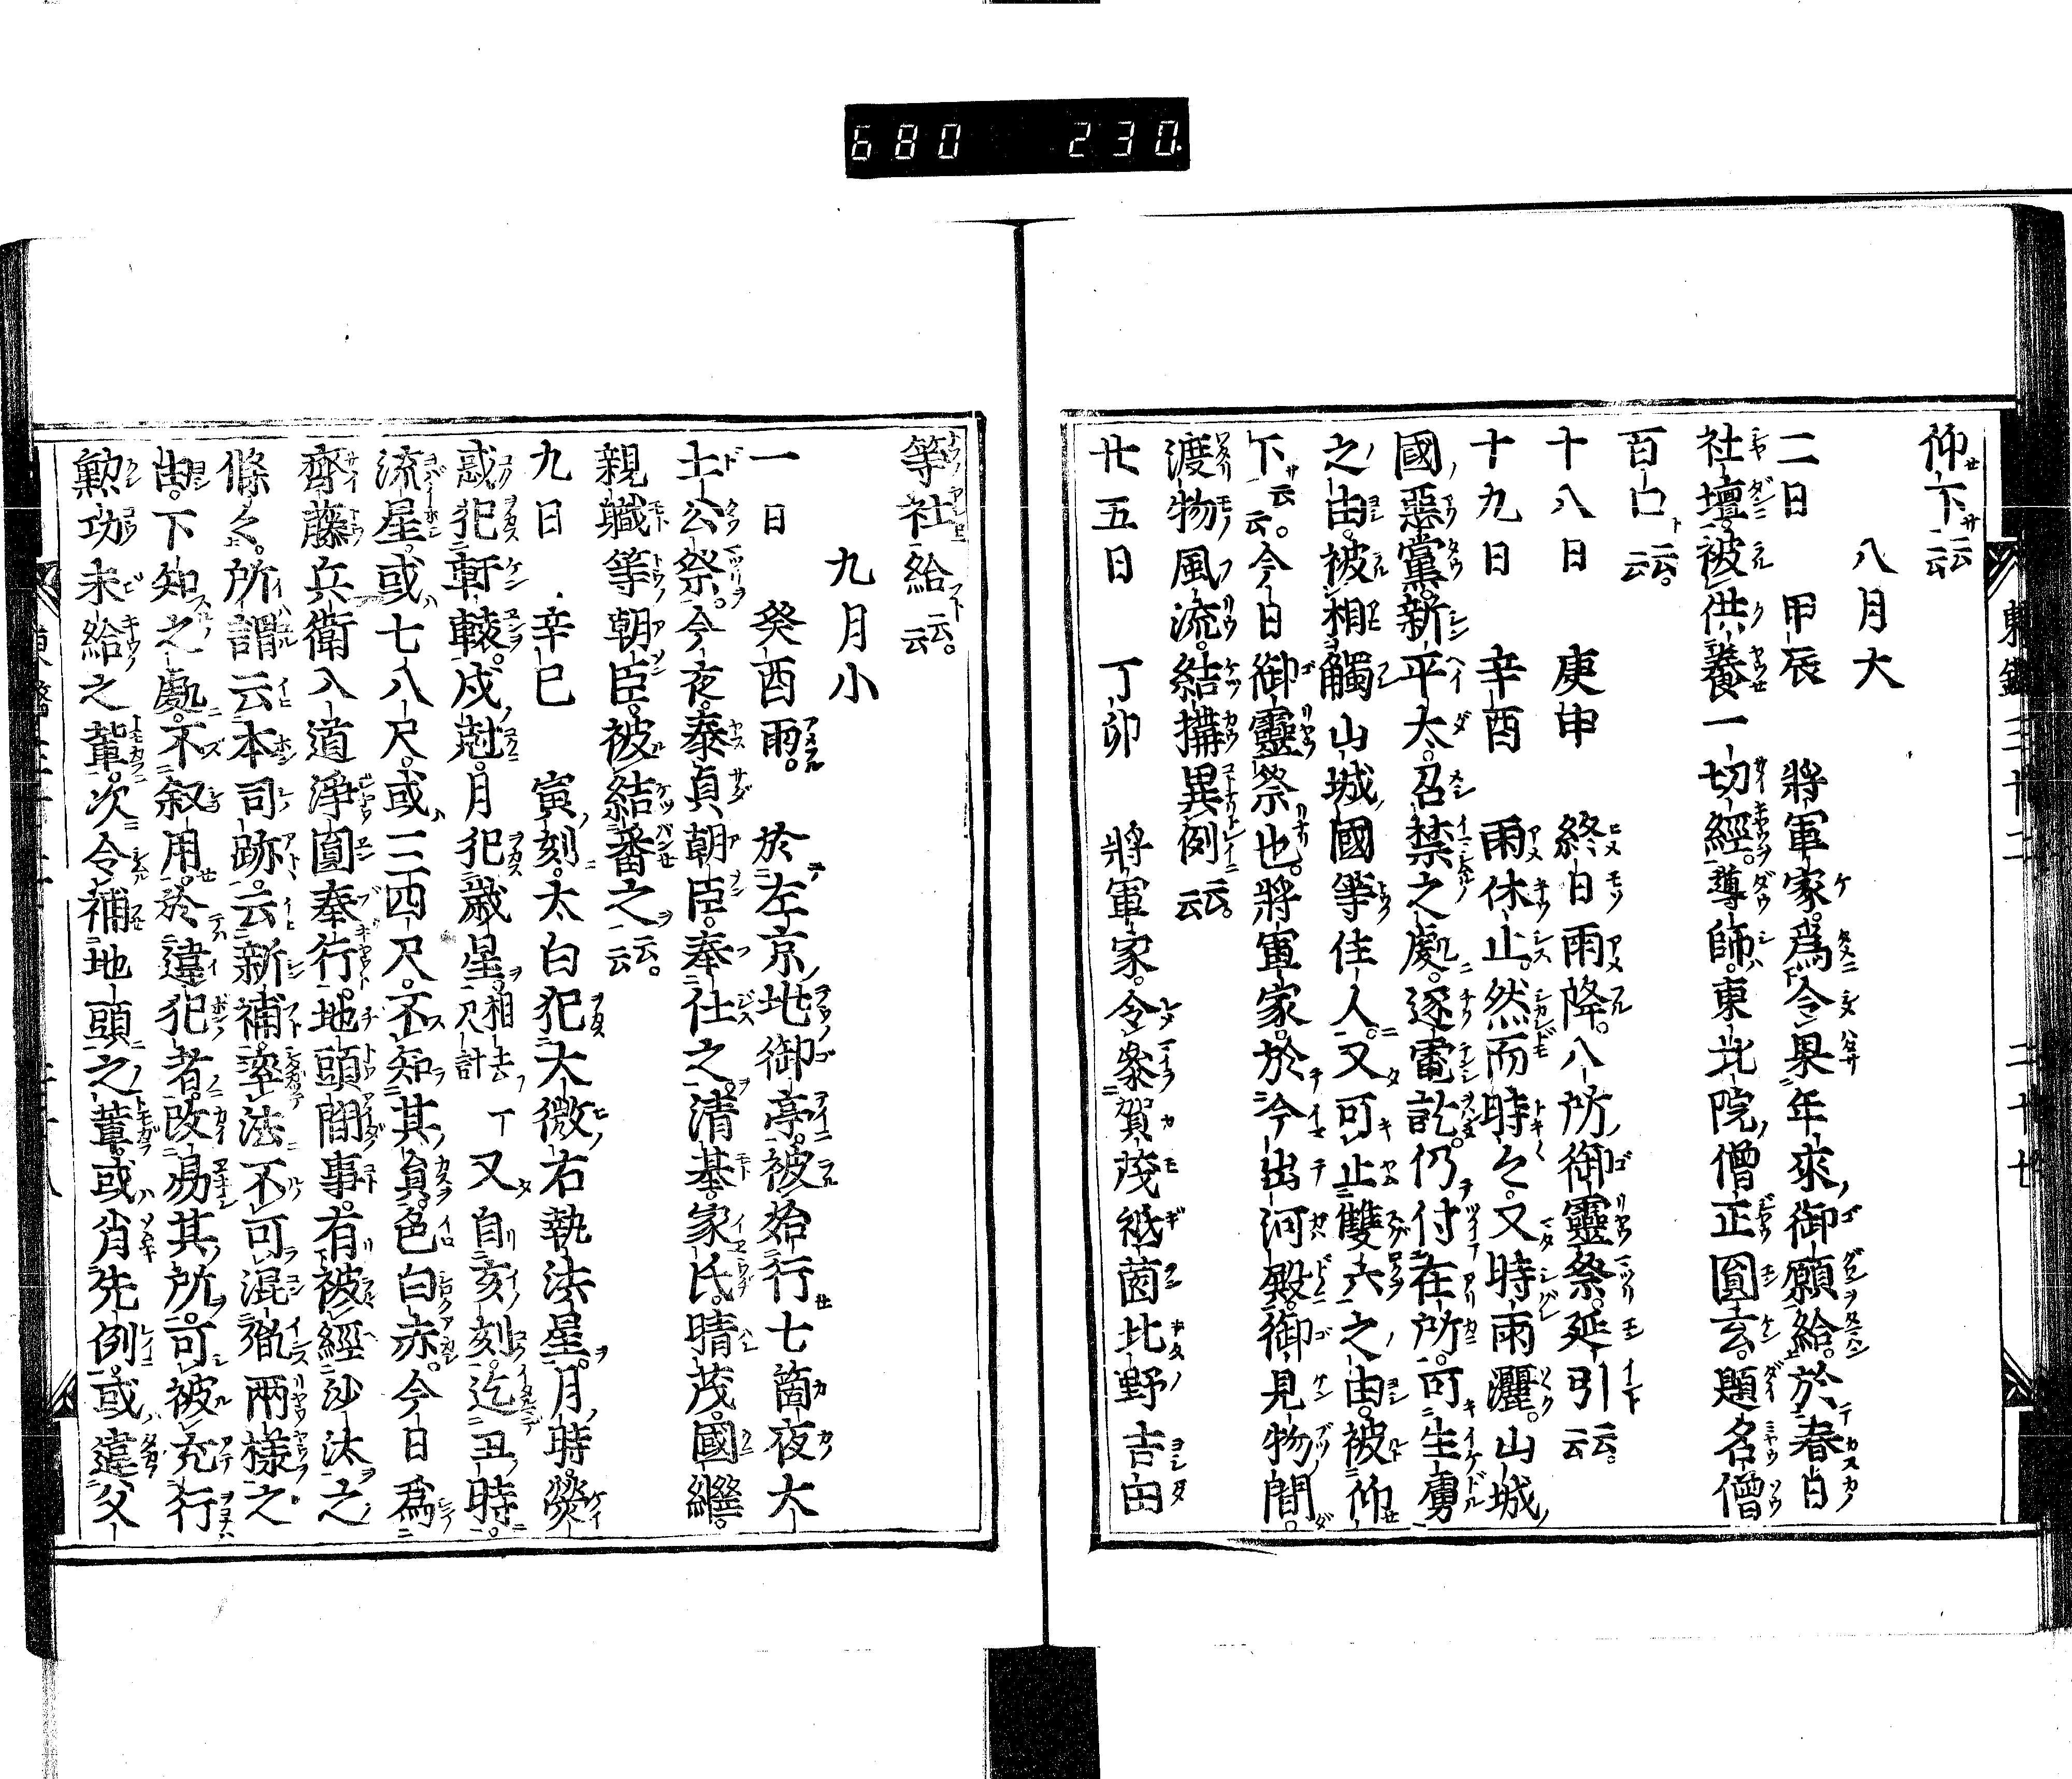 680 230.
仰下云云
八月大
二日 甲辰 將軍家爲令果年來御願給於春日
社壇被供養一切經導師東北院僧正圓玄題名僧
百口云云
十八日 庚申 終日雨降八所御靈祭延引云云
十九日 辛酉 雨休止然而時々又時雨灑山城
國惡黨新平太召禁之處逐電訖仍付在所可生虜
之由被相觸山城國等住人又可止雙六之由被仰
下云云今日御靈祭也將軍家於今出河殿御見物間
渡物風流結搆異例云云
廿五日 丁卯 將軍家令參賀茂祇薗北野吉田
等社給云云
九月小
一日 癸酉雨 於左京兆御亭被始行七箇夜大
土公祭今夜泰貞朝臣奉仕之清基家氏晴茂國繼
親職等朝臣被結番之云云
九日 辛巳 寅刻太白犯大微右執法星月時熒
惑犯軒轅戌尅月犯歲星相去尺計 又自亥刻迄丑時
流星或七八尺或三四尺不知其員色白赤今日爲
齊藤兵衛入道淨圓奉行地頭間事有被經沙汰之
條々所謂云本司跡云新補率法不可混乱兩樣之
由下知之處不叙用於違犯者改易其所可被充行
勲功未給之輩次令補地頭之輩或背先例或違父
東鑑三十二 二十七